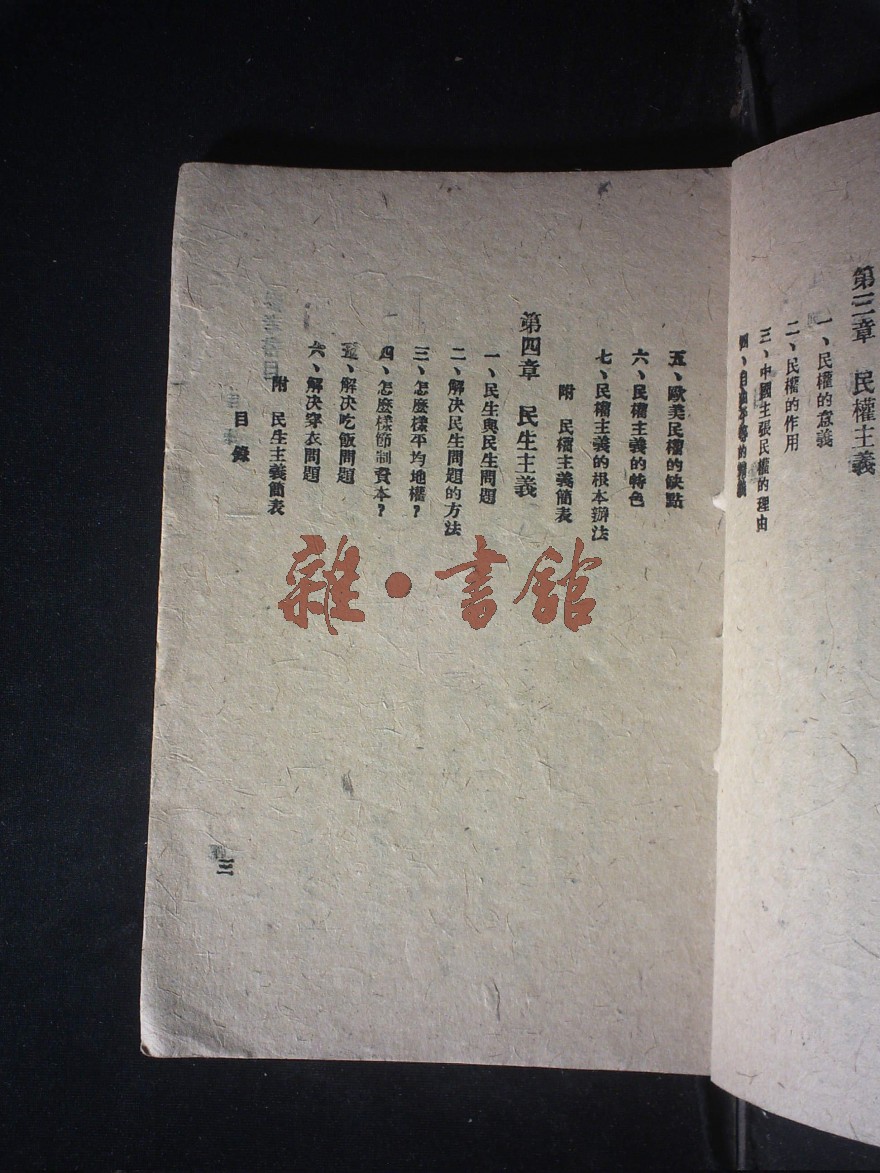 第三章　民權主義
一、民權的意義
二、民權的作用
三、中國主張民權的理由
四、自由平等的精義
五、歐美民權的缺點
六、民權主義的特色
七、民權主義的根本辦法
附　民權主義簡表
第四章　民生主義
一、民生與民生問題
二、解決民生問題的方法
三、怎麼樣平均地權?
四、怎麼樣節制資本?
五、解決吃飯問題
六、解決穿衣問題
附　民生主義簡表
目錄
三
雜·書館